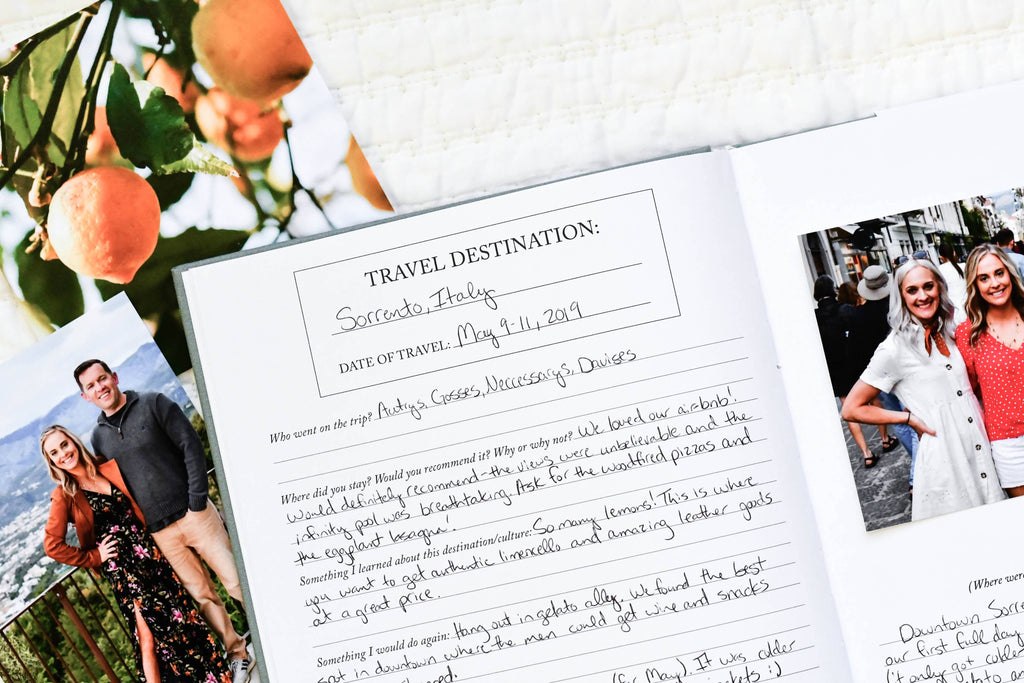 TRAVEL DESTINATION:
Sorrento, Italy
DATE OF TRAVEL: May 9-11, 2019
Who went on the trip? Autrys, Gosses, Neccessarys, Davises
Where did you stay? Would you recommend it? Why or why not? We loved our airbnb!
Would definitely recommend - the views were unbelievable and the
infinity pool was breathtaking. Ask for the woodfired pizzas and
the eggplant lasagna!
Something I learned about this destination/culture: So many lemons! This is where
you want to get authentic limencello and amazing leather goods
at a great price.
Something I would do again: Hang out in gelato alley. We found the best
spot in downtown where the men could get wine and snacks
(for May). It was colder
(Where were
Downtown Sorr
our first full day
(it only got colder